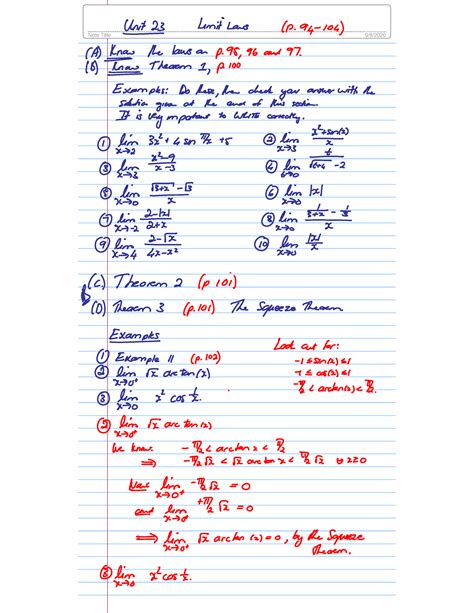 Note Title
Unit 23 Limit Laws (p. 94-104)
9/8/2020
(A) Know the laws on p. 95, 96 and 97.
(B) Know Theorem 1, p 100
Examples: Do these, then check your answer with the
solution given at the end of this section.
It is very important to write correctly.
① lim x→2 3x² + 4 sin π/x + 5
② lim x→3 (x² + sin(x))/x
③ lim x→3 (x²-9)/(x-3)
④ lim t→0 t/(√(t+4) - 2)
⑤ lim x→0 (√(3+x) - √3)/x
⑥ lim x→0 |x|
⑦ lim x→-2 (2-|x|)/(2+x)
⑧ lim x→0 (1/(3+x) - 1/3)/x
⑨ lim x→4 (2-√x)/(4x-x²)
⑩ lim x→0 |x|/x
(C) Theorem 2 (p 101)
(D) Theorem 3 (p. 101) The Squeeze Theorem
Examples
Look out for:
① Example 11 (p. 102)
-1 ≤ sin(x) ≤ 1
② lim x→0⁺ √x arctan(x)
-1 ≤ cos(x) ≤ 1
-π/2 < arctan(x) < π/2
③ lim x→0 x² cos 1/x.
② lim x→0⁺ √x arctan(x)
We know: -π/2 < arctan x < π/2
⇒ -π/2 √x < √x arctan x < π/2 √x ∀ x≥0
Now: lim x→0⁺ -π/2 √x = 0
and lim x→0⁺ +π/2 √x = 0
⇒ lim x→0⁺ √x arctan(x) = 0, by the Squeeze
Theorem.
③ lim x→0 x² cos 1/x.